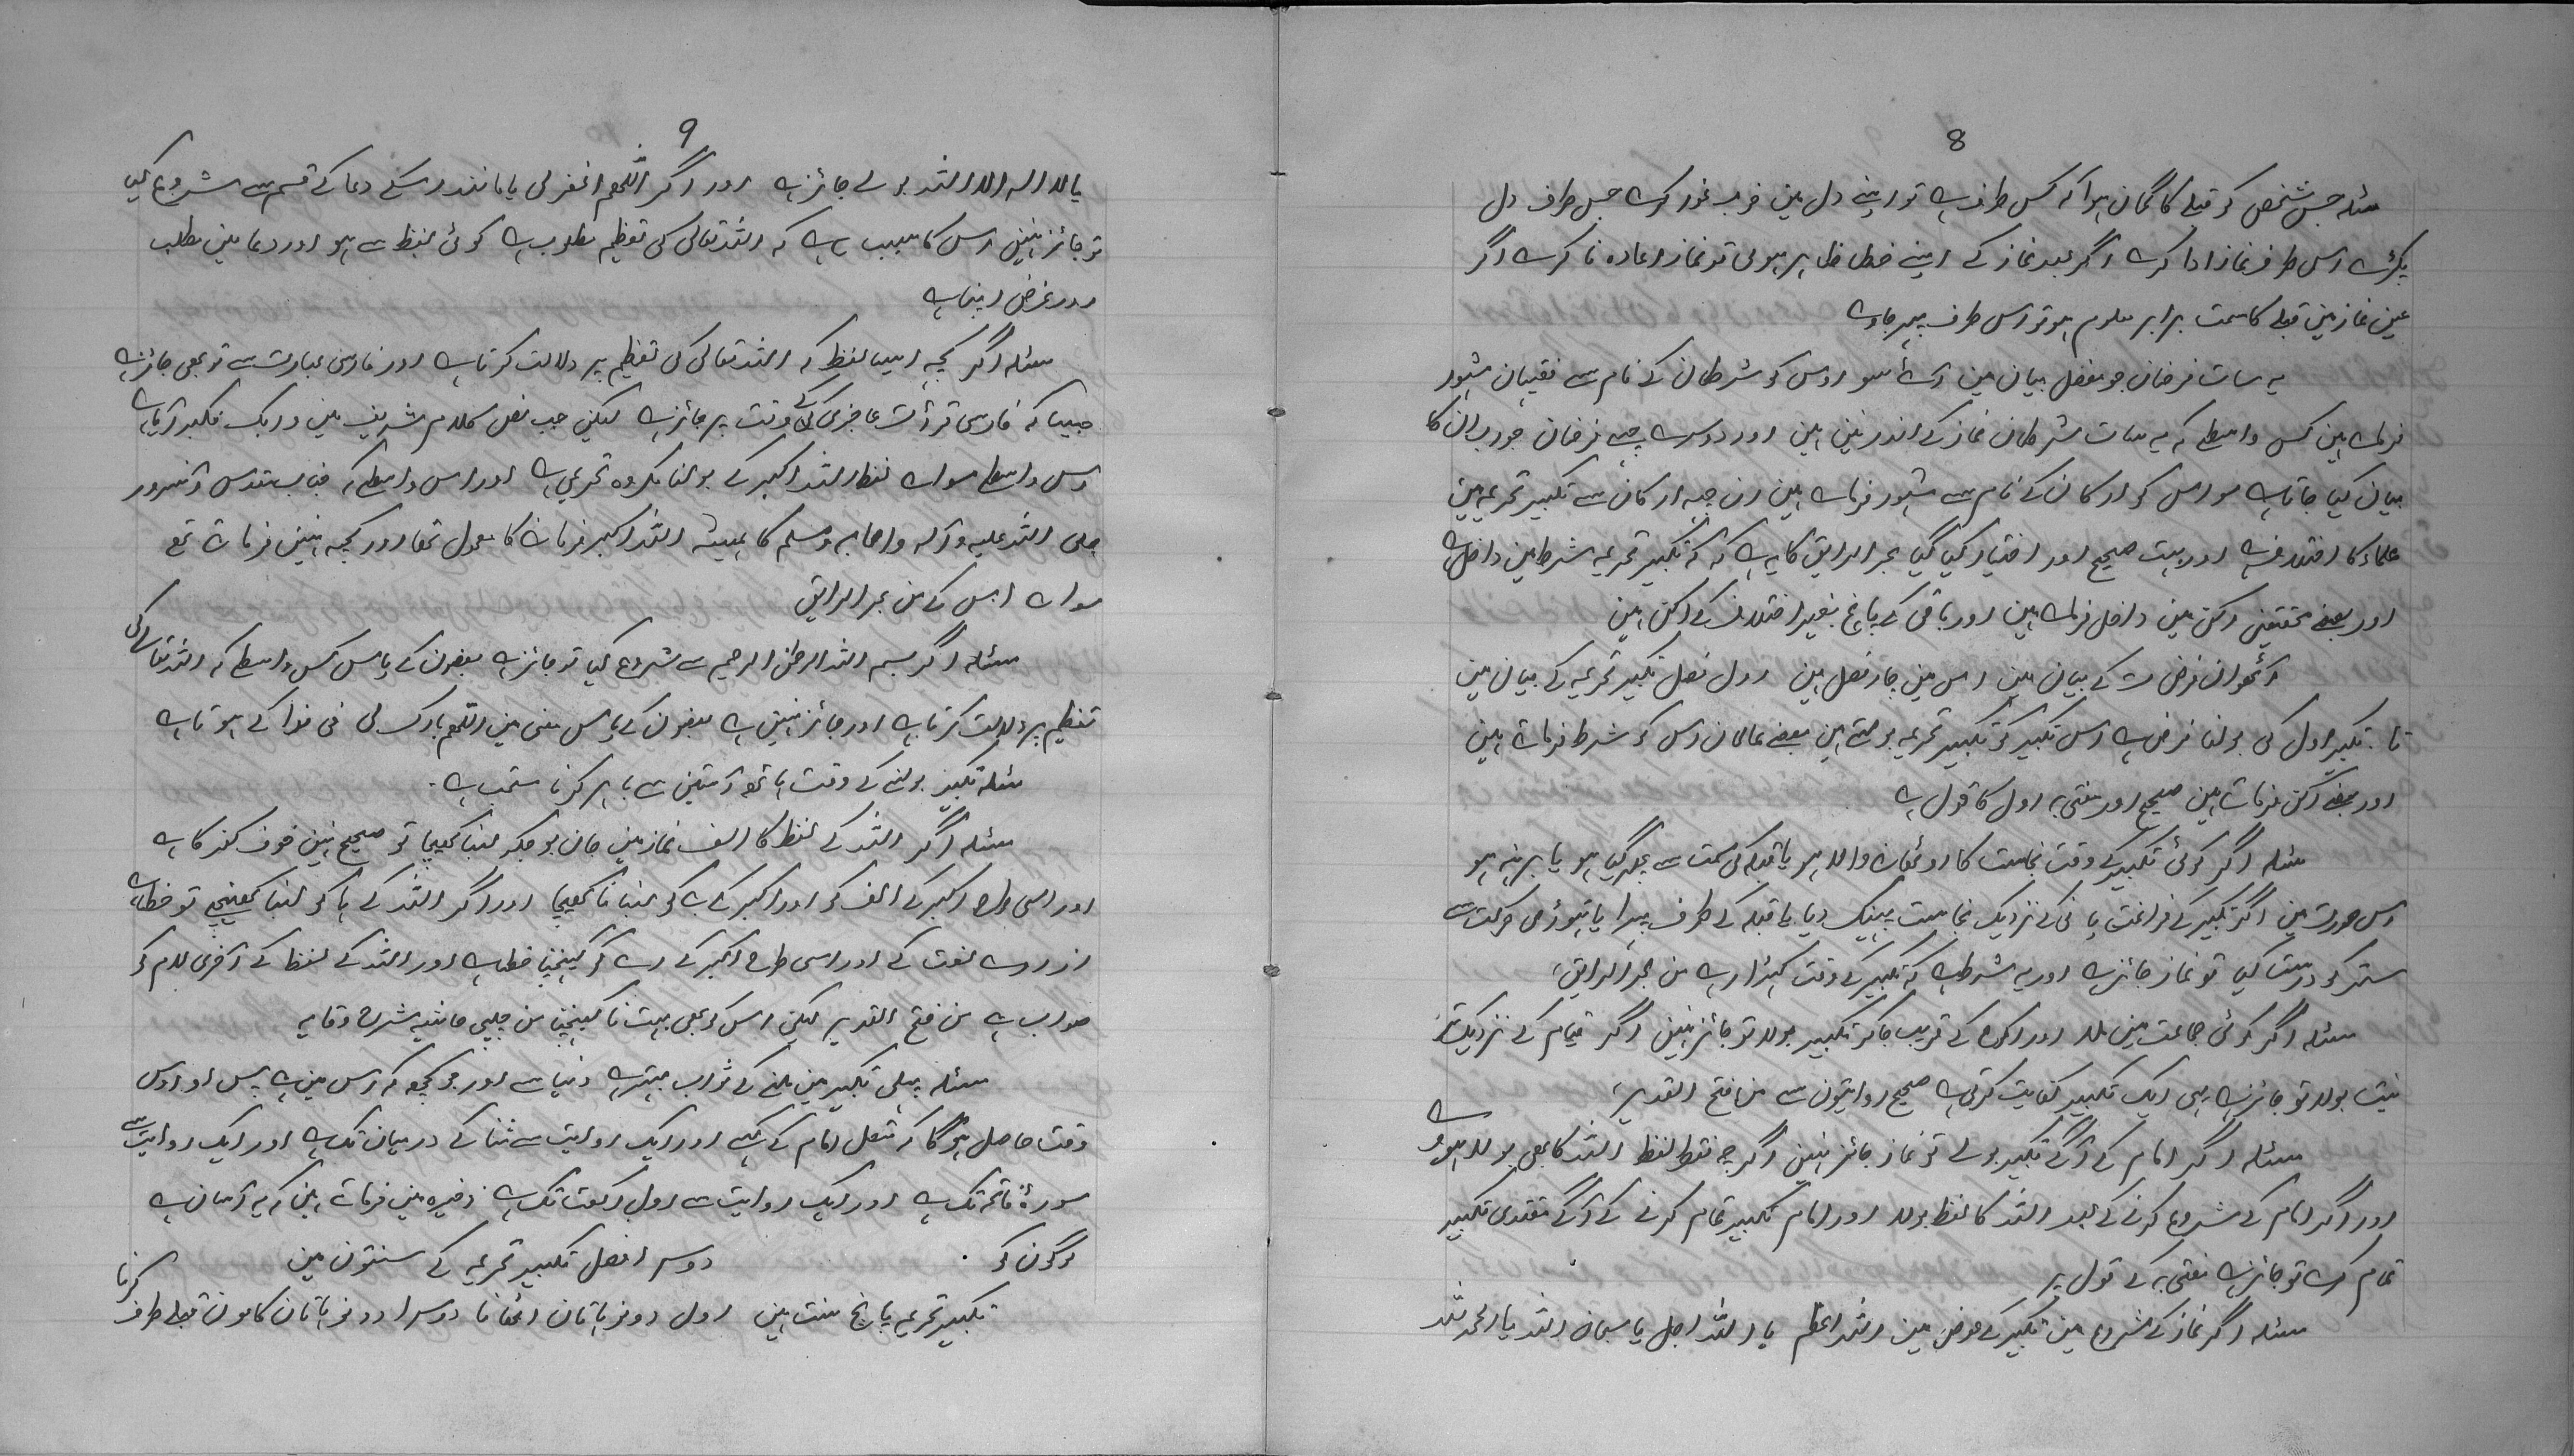 8
مسئلہ جس شخص کو قبلے کا گمان ہوا کہ کس طرف ہے تو اپنے دل مین خوب غور کرے جس طرف دل
پکڑے اس طرف نماز ادا کرے اگر بعد نماز کے اپنے خطا ظاہر ہوئی تو نماز اعادہ نا کرے اگر
عین نماز مین قبلے کا سمت برابر معلوم ہو تو اس طرف پھر جاوے
یہ سات فرضان جو مفصل بیان مین آئے سو اوس کو شرطان کے نام سے فقیہان مشہور
فرمائے ہین کس واسطے کہ یہ سات شرطان نماز کے اندر نین ہین اور دوسرے چھے فرضان جو ان کا
بیان کیا جاتا ہے سو اس کو ارکان کے نام سے مشہور فرمائے ہین ان چھے ارکان سے تکبیر تحریمہ مین
علماء کا اختلاف ہے اور بہت صحیح اور اختیار کیا گیا بحر الرایق کا یہ ہے کہ تکبیر تحریمہ شرط مین داخل ہے
اور بعضے محققین رکن مین داخل فرمائے ہین اور باقی کے پانچ بغیر اختلاف کے رکن ہین
آٹھوان فرض کے بیان مین اس مین چار فصل ہین اول فصل تکبیر تحریمہ کے بیان مین
تکبیر اول کی بولنا فرض ہے اس تکبیر کو تکبیر تحریمہ بولتے ہین بعضے عالمان اس کو شرط فرماتے ہین
اور بعضے رکن فرماتے ہین صحیح اور مفتی بہ اول کا قول ہے
مسئلہ اگر کوئی تکبیر کے وقت نجاست کا اوٹھانے والا ہو یا قبلہ کی سمت سے پھر گیا ہو یا برہنہ ہو
اس صورت مین اگر تکبیر کے فراغت پانی کے نزدیک نجاست پھینک دیا یا قبلہ کے طرف پھرا یا تھوڑی حرکت سے
ستر کو درست کیا تو نماز جائز ہے اور یہ شرط ہے کہ تکبیر کے وقت کھڑا رہے من بحر الرایق
مسئلہ اگر کوئی جماعت مین ملا اور رکوع کے قریب جا کر تکبیر بولا تو جائز نہین اگر قیام کے نزدیک
نیت بولا تو جائز ہے یہی ایک تکبیر کفایت کرتی ہے صحیح روایتون سے من فتح القدیر
مسئلہ اگر امام کے آگے تکبیر بولے تو نماز جائز نہین اگرچہ فقط لفظ اللہ کا بھی بولا ہوے
اور اگر امام کے شروع کرنے کے بعد اللہ کا لفظ بولا اور امام تکبیر تمام کرنے کے آگے مقتدی تکبیر
تمام کرے تو جائز ہے مفتی بہ کے قول پر
مسئلہ اگر نماز کے شروع مین تکبیر کے عوض مین اللہ اعظم یا اللہ اجل یا سبحان اللہ یا الحمد للہ
9
یا لا الہ الا اللہ بولے جائز ہے اور اگر اللھم اغفر لی یا مانند اسکے دعا کے قسم سے شروع کیا
تو جائز نہین اس کا سبب یہ ہے کہ اللہ تعالی کی تعظیم مطلوب ہے کوئی لفظ سے ہو اور دعا مین مطلب
اور غرض اپنا ہے
مسئلہ اگر کچھ ایسا لفظ کہ اللہ تعالی کی تعظیم پر دلالت کرتا ہے اور فارسی عبارت سے تو بھی جائز ہے
جیسا کہ فارسی قرأت عاجزی کے وقت پر جائز ہے لیکن جب نص کلام شریف مین وربک فکبر آیا ہے
اس واسطے سوائے لفظ اللہ اکبر کے بولنا مکروہ تحریمی ہے اور اس واسطے کہ جناب مقدس آنسرور
صلی اللہ علیہ وآلہ واصحابہ وسلم کا ہمیشہ اللہ اکبر فرمانے کا معمول تھا اور کچھ نہین فرماتے تھے
سوائے اس کے من بحر الرایق
مسئلہ اگر بسم اللہ الرحمن الرحیم سے شروع کیا تو جائز ہے بعضون کے پاس کس واسطے کہ اللہ تعالے کی
تعظیم پر دلالت کرتا ہے اور جائز نہین ہے بعضون کے پاس معنی مین اللھم بارک لی فی ھذا کے ہوتا ہے
مسئلہ تکبیر بولنے کے وقت ہاتھ آستین سے باہر کرنا مستحب ہے ۔
مسئلہ اگر اللہ کے لفظ کا الف نماز مین جان بوجکر لنبا کھینچا تو صحیح نہین خوف کفر کا ہے
اور اسی طرح اکبر کے الف کو اور اکبر کے بے کو لنبا نا کھینچا اور اگر اللہ کے ہا کو لنبا کھینچے تو خطا ہے
از روے لغت کے اور اسی طرح اکبر کے رے کو کھینچنا خطا ہے اور اللہ کے لفظ کے آخری لام کو
صواب ہے من فتح القدیر لیکن اس کو بھی بہت نا کھینچنا من چلپی حاشیہ شرح وقایہ
مسئلہ پہلی تکبیر مین ملنے کے ثواب بہتر ہے دنیا سے اور جو کچھ کہ اس مین ہے پس او اوس
وقت حاصل ہوگا کہ متصل امام کے کہے اور ایک روایت سے ثنا کے درمیان تک ہے اور ایک روایت سے
سورۂ فاتحہ تک ہے اور ایک روایت سے اول رکعت تک ہے ذخیرہ مین فرماتے ہین کہ یہ آسان ہے
لوگون کو . دوسرا فصل تکبیر تحریمہ کے سنتون مین
تکبیر تحریمہ پانچ سنت ہین اول دونو ہاتان اٹھانا دوسرا دونو ہاتان کا مون قبلے طرف کرنا